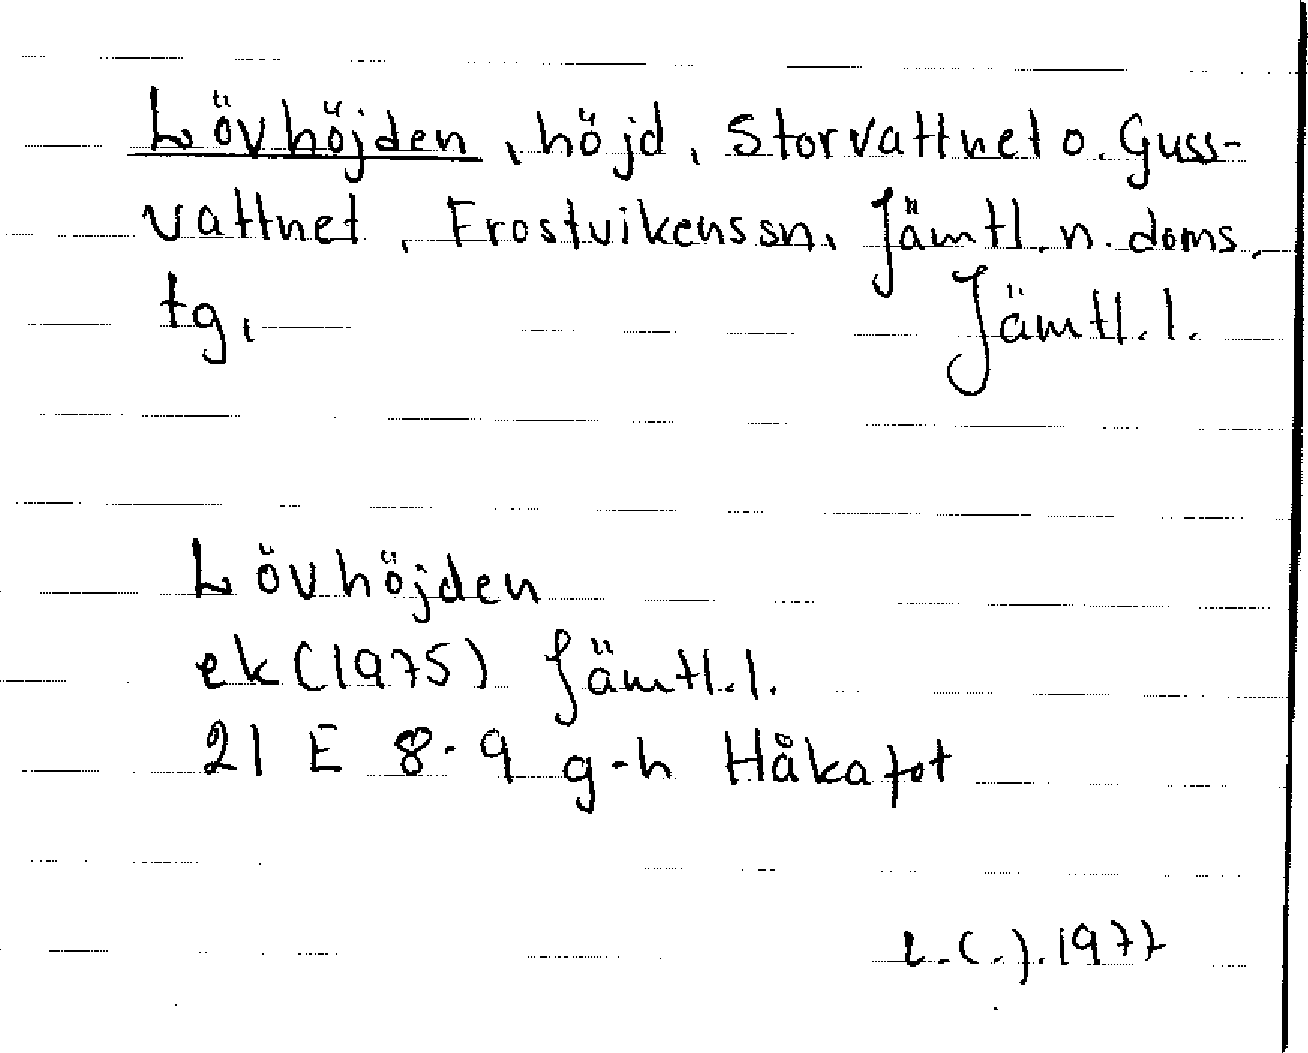 Lövhöjden, höjd, Storvattnet o. Guss-
vattnet, Frostvikens sn, Jämtl. n. doms.
tg, Jämtl. l.
Lövhöjden
ek (1975) Jämtl. l.
21 E 8-9 g-h Håkafot
1977